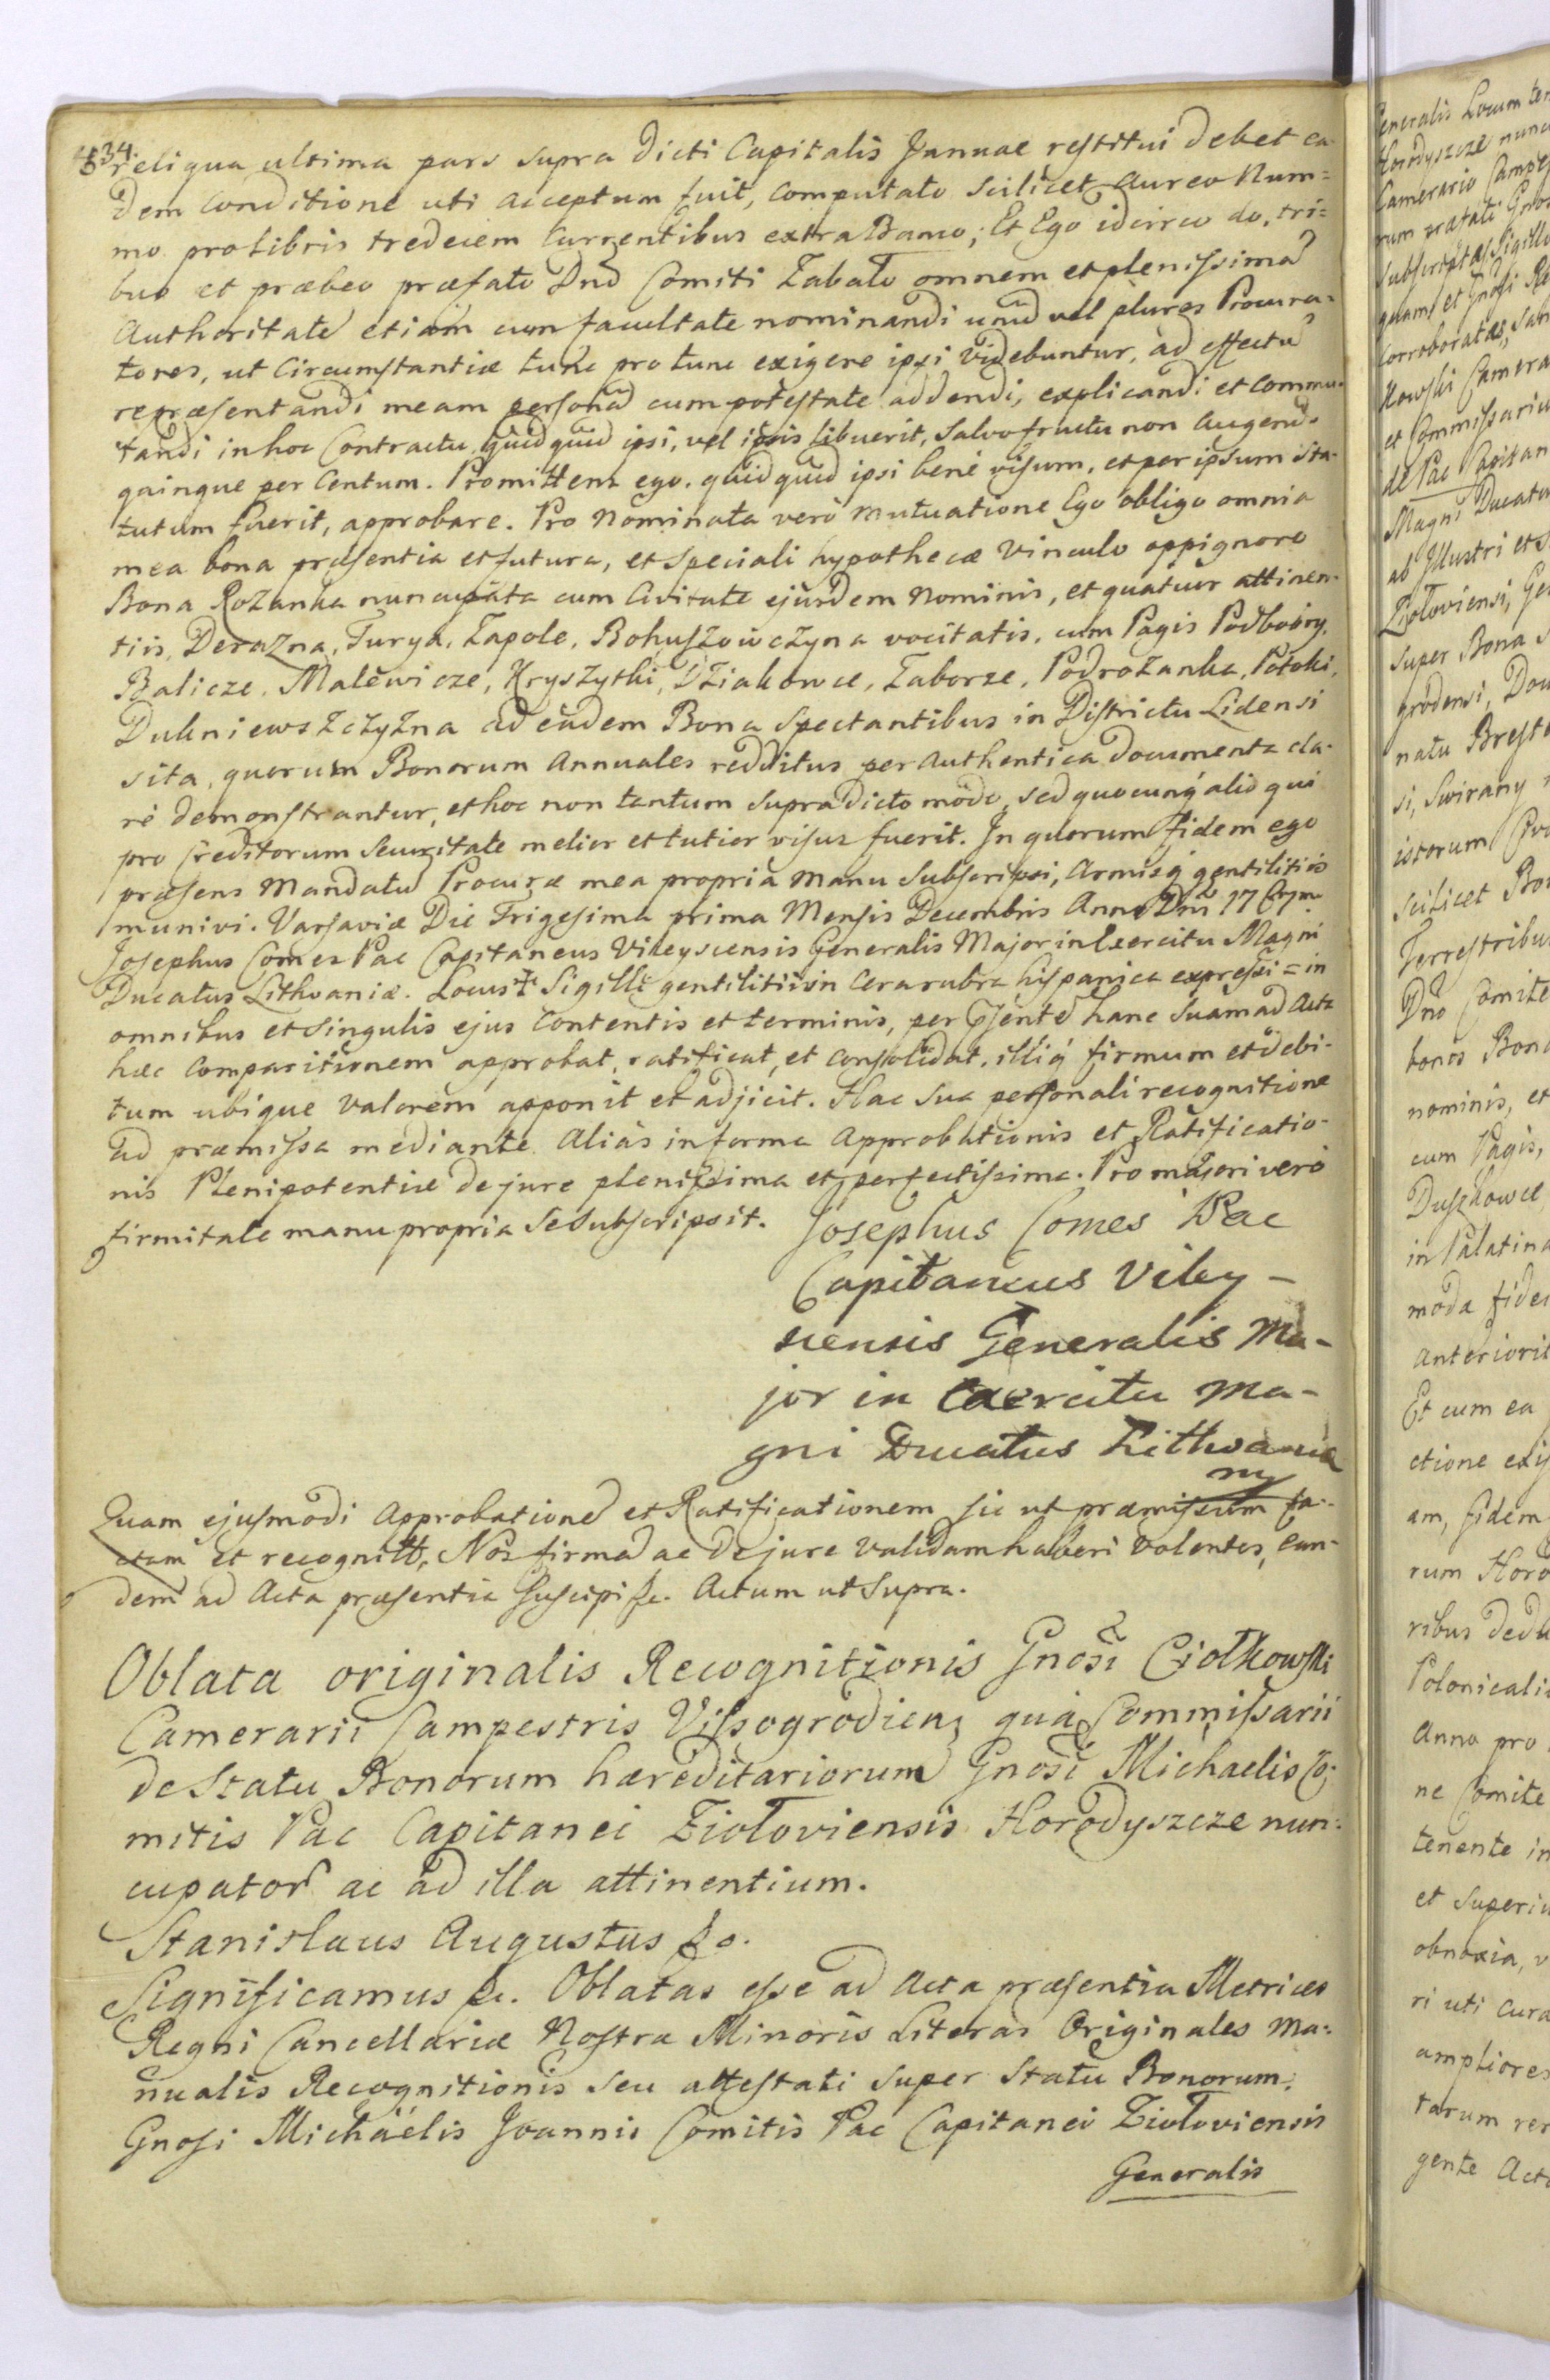 434.
reliqua ultima pars supra dicti Capitalis Januae restitui debet ea-
dem conditione uti acceptum fuit, computato scilicet aureo Num=
mo pro libris tredecem Currentibus extra Banco; Et Ego idcirco do, tri=
buo et præbeo præfato Dnō Comiti Zabato omnem et plenissimā
Authoritatē etiam cum facultate nominandi unū vel plures Procura-
tores, ut Circumstantiæ tunc pro tunc exigere ipsi videbuntur, ad effectū
repræsentandi meam personā cum potestate addendi, explicandi et commu-
tandi in hoc Contractu quidquid ipsi, vel ipsis libuerit, salvo fructu non augendo
quinque per Centum. Promittens ego, quidquid ipsi benè visum, et per ipsum sta-
tutum fuerit, approbare. Pro Nominata verò mutuatione Ego obligo omnia
mea bona præsentia et futura, et speciali hypothecæ vinculo oppignoro
Bona Rozanka nuncupata cum Civitate ejusdem Nominis, et quatuor attinen-
tiis, Derazna, Turya, Zapole, Bohuszowczyna vocitatis, cum Pagis Podbobry,
Balicze, Malewicze, Kryszytki, Dziakowce, Zaborze, Podrozanka, Potoki,
Dukniewszczyzna ad eadem Bona spectantibus in Districtu Lidensi
sita, quorum Bonorum Annuales redditus per Authentica documenta cla-
rè demonstrantur, et hoc non tantum supradicto modo, sed quocunq́ alio qui
pro Creditorum securitate melior et tutior visus fuerit. In quorum fidem ego
præsens Mandatū Procuræ mea propria manu subscripsi, Armisq́ gentilitiis
munivi. Varsaviæ Die Trigesima prima Mensis Decembris Anno Dnī 17
Josephus Comes Pac Capitaneus Vileyscensis Generalis Major in Exercitu Magni
Ducatus Lithvaniæ. Locus ‡ Sigilli gentilitii in Cera rubra hispanica expressi = in
omnibus et singulis ejus Contentis et terminis, per hanc suam ad Acta
hæc Comparitionem approbat, ratificat, et consolidat, illiq́ firmum et debi-
tum ubique valorem apponit et adjicit. Hac sua personali recognitione
ad præmissa mediante. Aliàs in forma Approbationis et Ratificatio-
nis Plenipotentiæ de jure plenissima et perfectissima. Pro majori verò
firmitate manu propria se subscripsit. Josephus Comes Pac
Capitaneus Viley-
scensis Generalis Ma-
jor in Exercitu Ma-
gni Ducatus Lithvaniæ
mp
Quam ejusmodi Approbationē et Ratificationem sic ut præmissum fa-
ctam et recognitā, Nos firmā ac de jure validam haberi volentes, ean-
dem ad Acta præsentia suscipi &c. Actum ut supra.
Oblata originalis Recognitionis Gnosi Ciołkowski
Camerarii Campestris Vissogrodien quà Commissarii
de Statu Bonorum hæreditariorum Gnosi Michaelis Co-
mitis Pac Capitanei Ziołoviensis Horodyszcze nun-
cupator ac ad illa attinentium.
Stanislaus Augustus &c.
Significamus &c. Oblatas esse ad Acta præsentia Metrices
Regni Cancellariæ Nostræ Minoris Literas Originales Ma-
nualis Recognitionis seu attestati super Statu Bonorum
Gnosi Michaelis Joannis Comitis Pac Capitanei Ziołoviensis
Generalis
Generalis Locum ten
Horodyszcze nunc
Camerario Campe
rum præfati Gnos
Subscriptas, Sigillo
quam et Gnosi
Corroboratas,
kowski Camera
et Commissariu
de Pac Capitan
Magni Ducatu
ab Illustri et
Ziołoviensi, Ge
super Bona
grodensi, Do
natu Brest
si, Swirany
istorum
scilicet Bo
Terrestribu
Dnō Comite
bonos Bon
nominis, et
cum Pagis,
Duszkowce
in Palatina
moda fide
Anteriorit
Et cum ea
ctione exi
am, fidem
rum Horo
ribus dedu
Polonicali
Anno pro
ne Comite
tenente in
et superi
obnoxia, v
ri uti cura
ampliores
tarum rer
gente Act